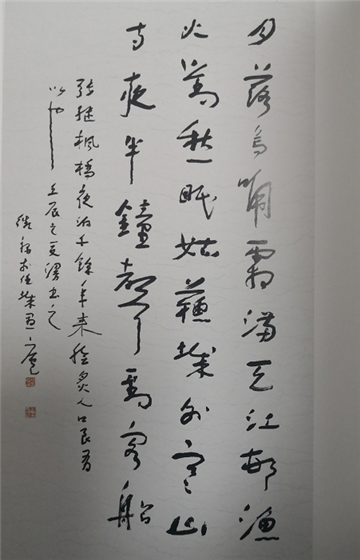 月落烏啼霜滿天江邨漁
火對愁眠姑蘇城外寒山
寺夜半鐘聲到客船
張繼楓橋夜泊千餘年來膾炙人口良有
以也壬辰之夏漫書之